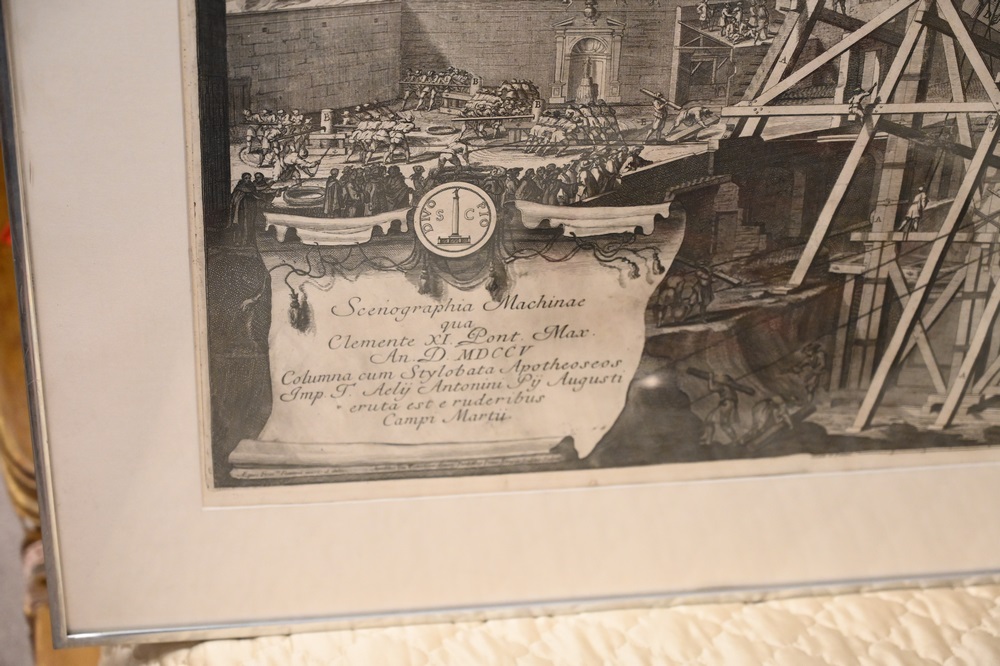 DIVO PIO
S C
B
B
A
A
A
Scenographia Machinae
qua
Clemente XI. Pont. Max.
An. D. MDCCV
Columna cum Stylobata Apotheoseos
Imp. T. Aelij Antonini Pij Augusti
eruta est e ruderibus
Campi Martii.